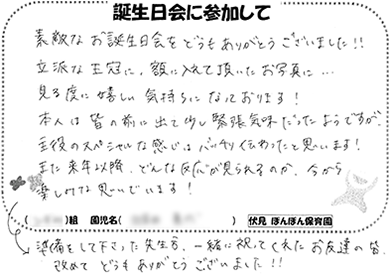 誕生日会に参加して
素敵なお誕生日会をどうもありがとうございました!!
立派な王冠に、額に入れて頂いたお写真に…
見る度に嬉しい気持ちになっております!
本人は皆の前に出て少し緊張気味だったようですが、
主役のスペシャルな感じはバッチリ伝わったと思います!
また来年以降、どんな反応が見られるのか、今から
楽しみな思いでいます!
)組 園児名( ) 伏見 ぽんぽん保育園
準備をして下さった先生方、一緒に祝ってくれたお友達の皆
改めて どうもありがとうございました!!